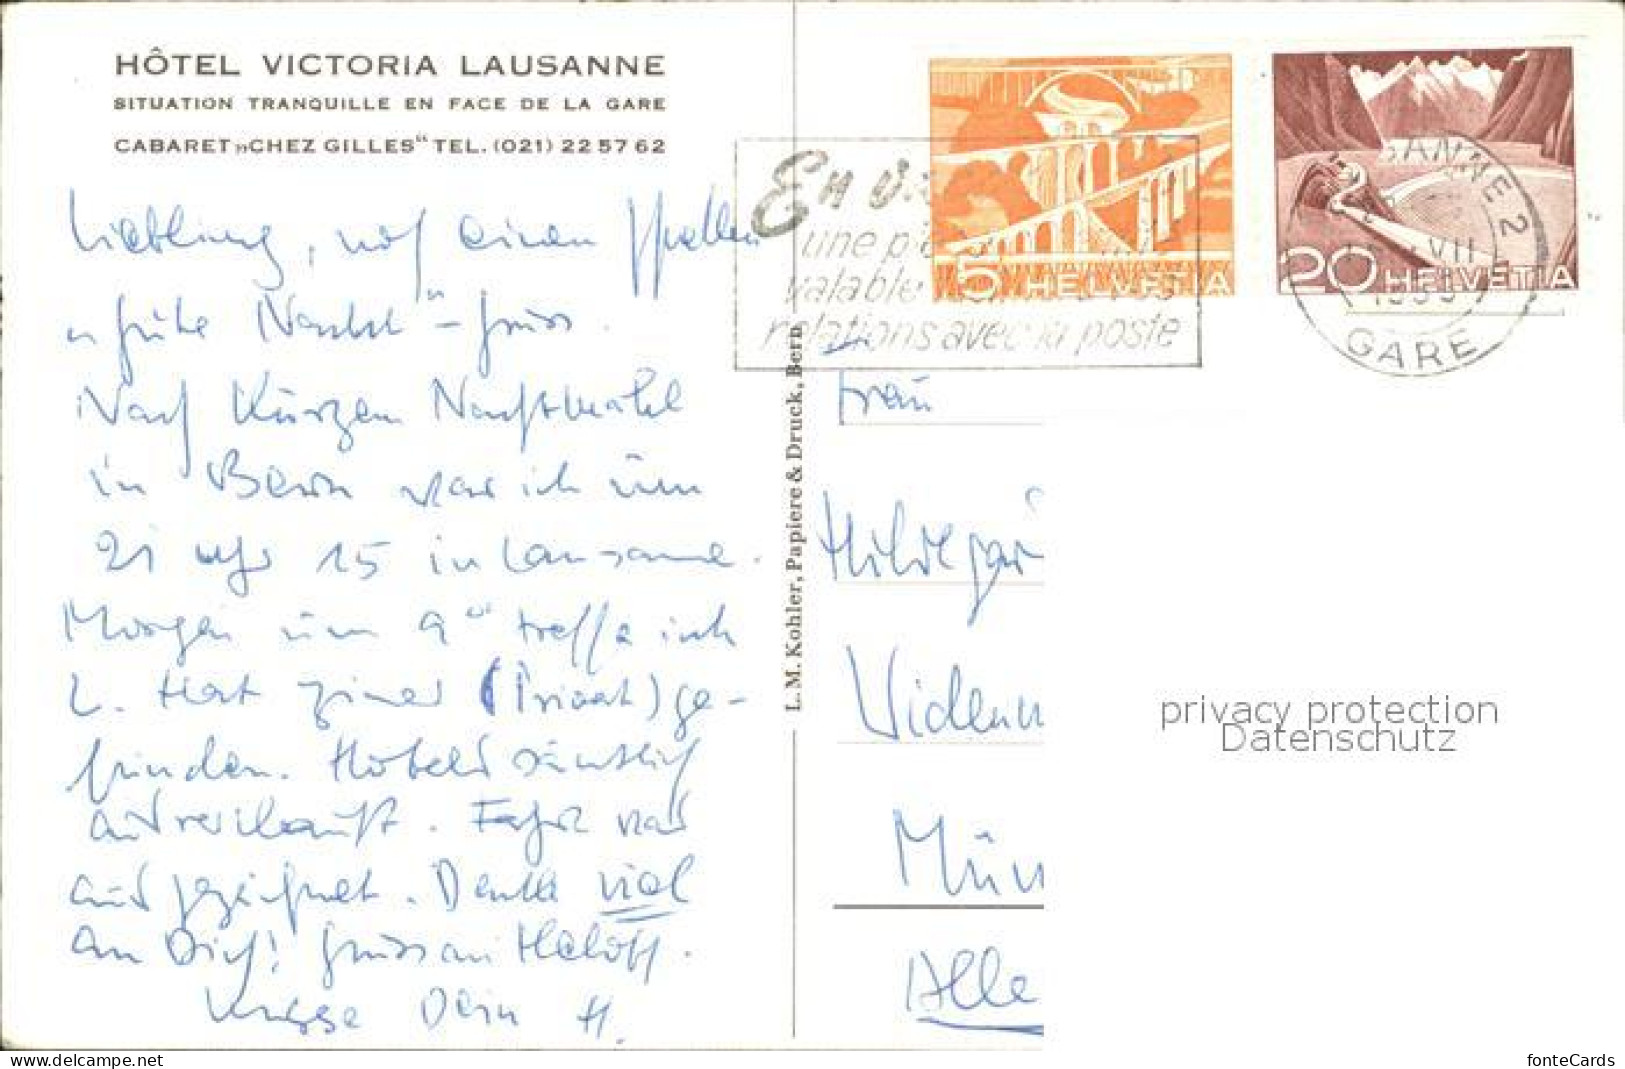 HÔTEL VICTORIA LAUSANNE
SITUATION TRANQUILLE EN FACE DE LA GARE
CABARET „CHEZ GILLES“ TEL. (021) 22 57 62
Liebling, noch einen schnellen
"gute Nacht" - gruss.
Nach kurzem Nachtmahl
in Bern war ich um
21 Uhr 15 in Lausanne.
Morgen um 9 treffe ich
L. Hat Zimmer (Privat) ge-
funden. Hotels sämtlich
ausverkauft. Fahrt war
ausgezeichnet. Denke viel
an Dich! Gruss an
Küsse Dein H.
L. M. Kohler, Papiere & Druck, Bern
En
une
valable
relations avec la poste
5 HELVETIA
20 HELVETIA
SANNE 2
VII
GARE
Frau
Hildegar
Mün
Alle
privacy protection
Datenschutz
fonteCards